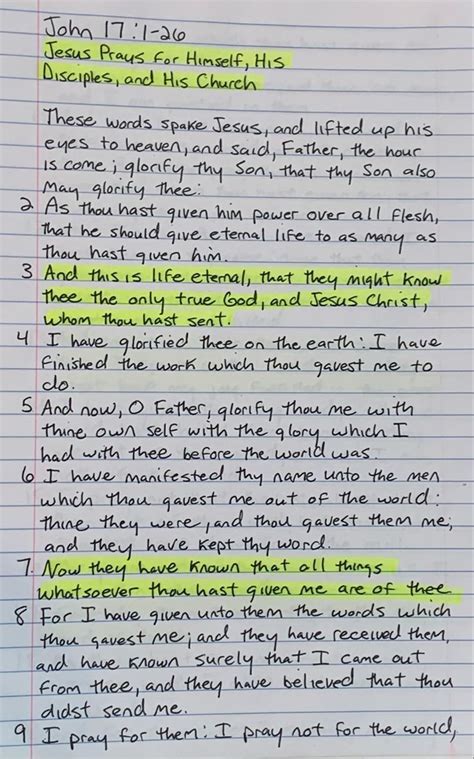 John 17:1-26
Jesus Prays for Himself, His
Disciples, and His Church
These words spake Jesus, and lifted up his
eyes to heaven, and said, Father, the hour
is come; glorify thy Son, that thy Son also
may glorify thee:
2 As thou hast given him power over all flesh,
that he should give eternal life to as many as
thou hast given him.
3 And this is life eternal, that they might know
thee the only true God, and Jesus Christ,
whom thou hast sent.
4 I have glorified thee on the earth: I have
finished the work which thou gavest me to
do.
5 And now, O Father, glorify thou me with
thine own self with the glory which I
had with thee before the world was.
6 I have manifested thy name unto the men
which thou gavest me out of the world:
thine they were, and thou gavest them me;
and they have kept thy word.
7. Now they have known that all things
whatsoever thou hast given me are of thee.
8 For I have given unto them the words which
thou gavest me; and they have received them,
and have known surely that I came out
from thee, and they have believed that thou
didst send me.
9 I pray for them: I pray not for the world,